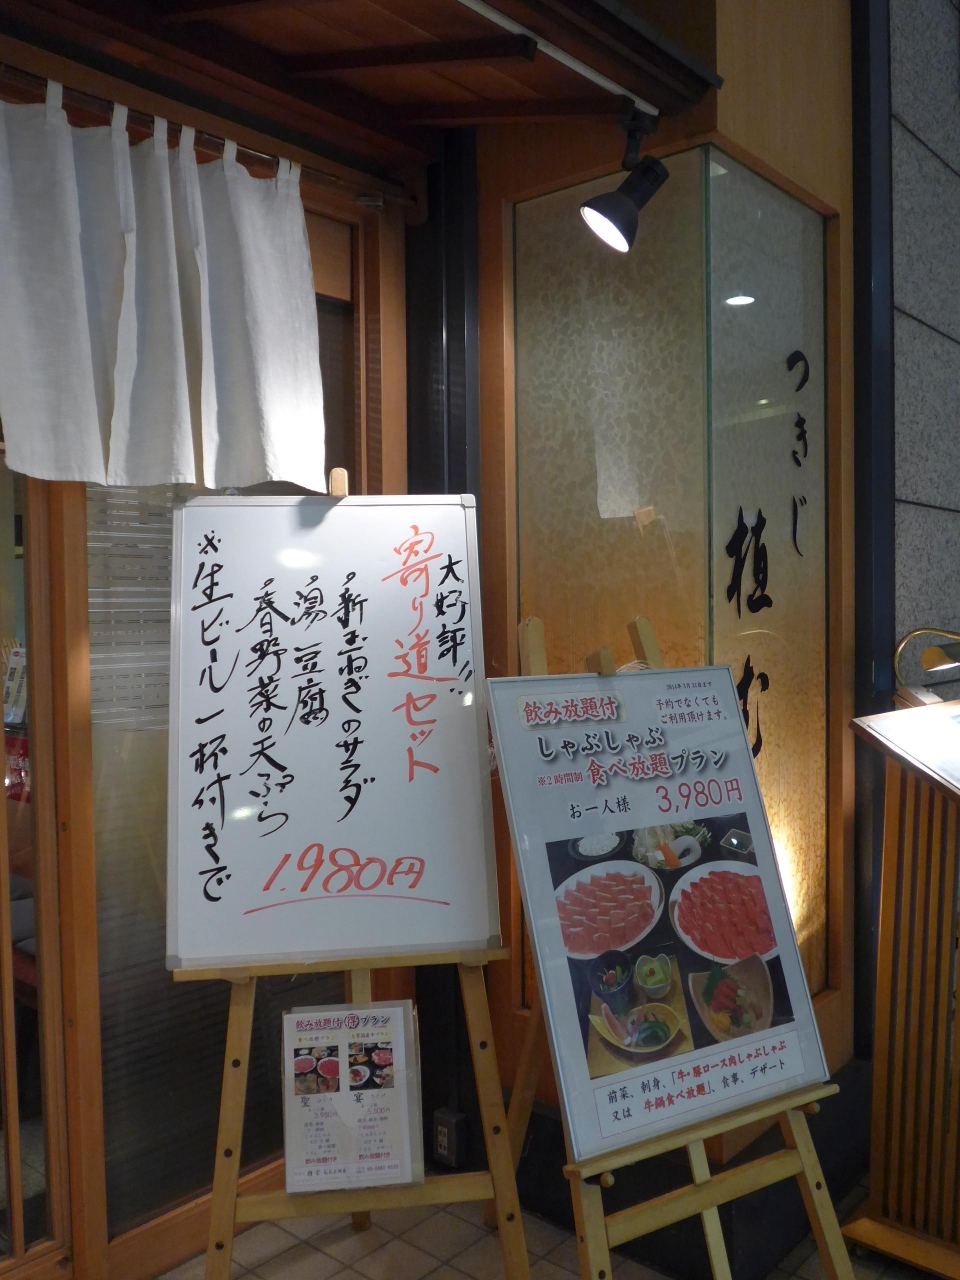 大好評!!
寄り道セット
・新玉ねぎのサラダ
・湯豆腐
・春野菜の天ぷら
※生ビール一杯付きで
1.980円
つきじ
植む
2014年3月31日まで
飲み放題付
予約でなくても
ご利用頂けます。
しゃぶしゃぶ
※2時間制 食べ放題プラン
お一人様 3,980円
前菜、刺身、「牛・豚ロース肉しゃぶしゃぶ
又は 牛鍋食べ放題」、食事、デザート
飲み放題付得プラン
聖
宴
3,980円
5,500円
飲み放題付き
飲み放題付き